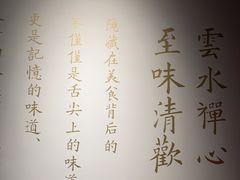 雲水禪心
至味清歡
隱藏在美食背后的
不僅僅是舌尖上的味道
更是記憶的味道、